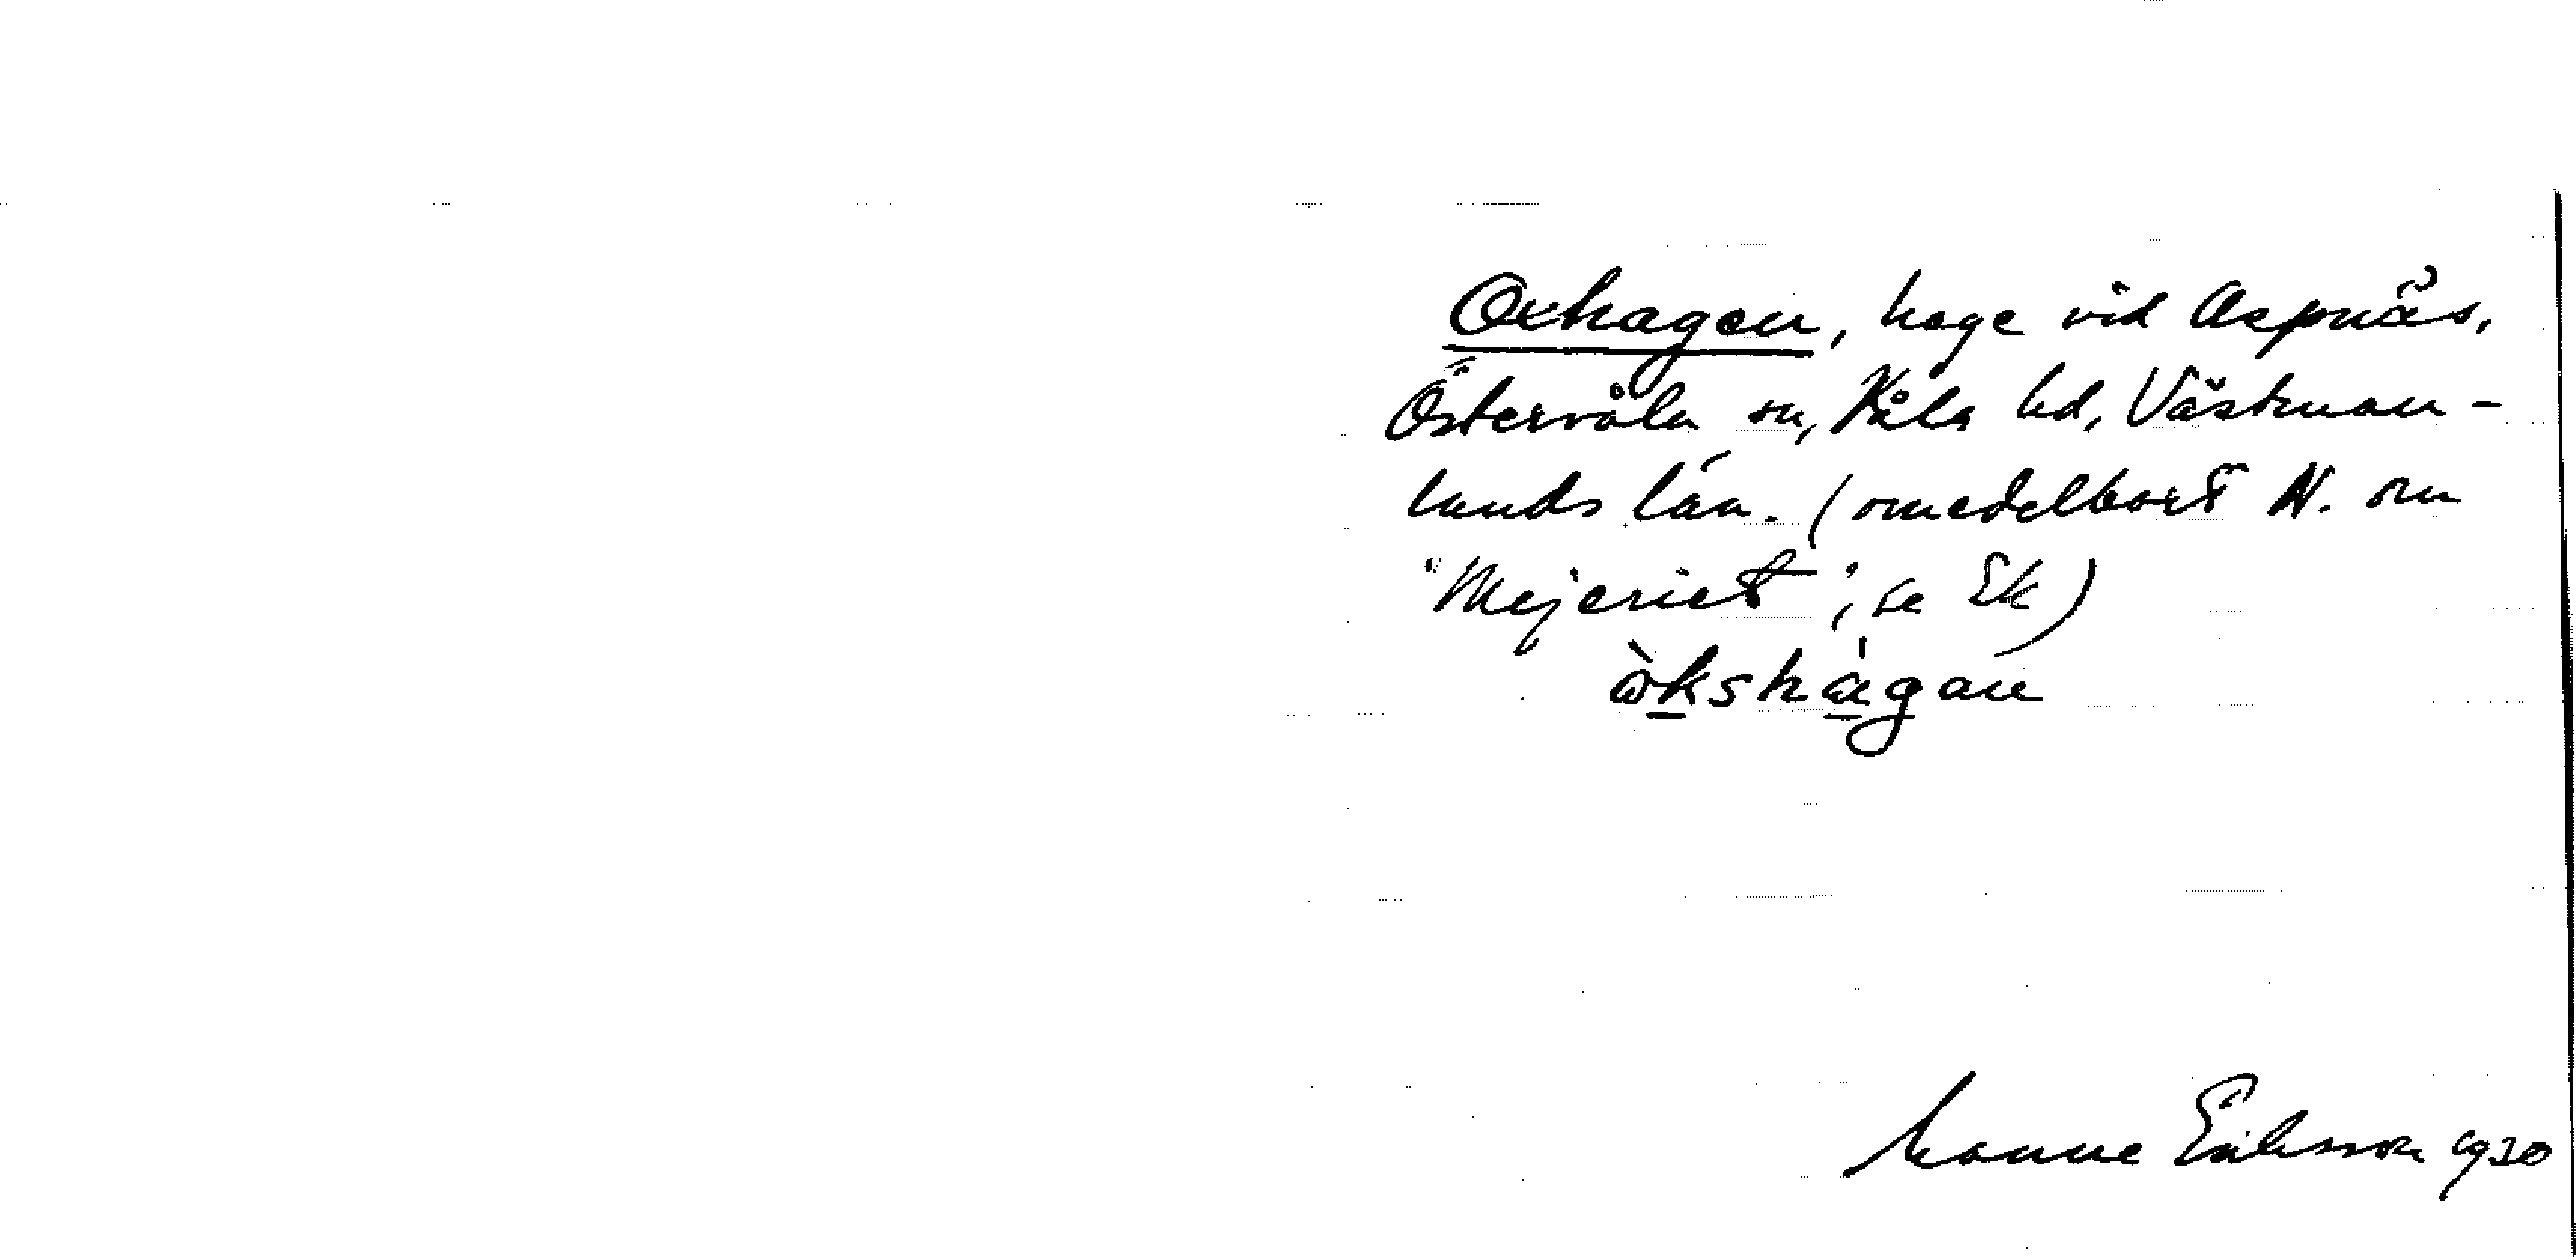 Oxhagen, hage vid Aspnäs,
Östervåla sn, Våla hd, Västman-
lands län. (omedelbart N. om
"Mejeriet"; se Ek)
òkshàgan
Manne Eriksson 1930